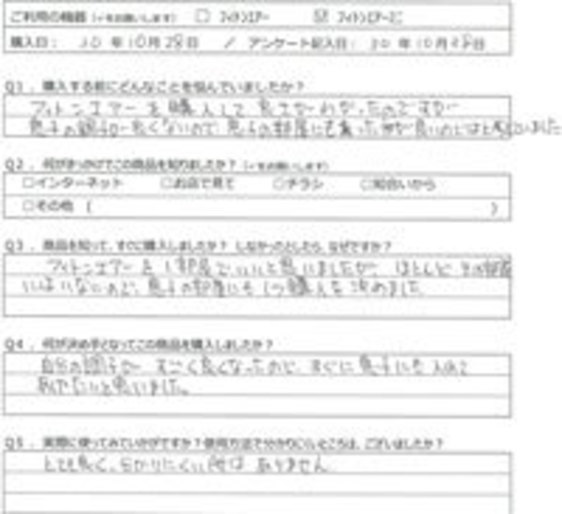 ご利用の機器 (✓をお願いします) □ フィトンエアー ☑ フィトンエアーミニ
購入日: 30 年10月28日 / アンケート記入日: 30 年10月28日
Q1. 購入する前にどんなことを悩んでいましたか?
フィトンエアーを購入して 良さがわかったのですが
息子の調子が良くないので 息子の部屋にも
Q2. 何がきっかけでこの商品を知りましたか? (✓をお願いします)
□インターネット □お店で見て □チラシ □知合いから
□その他 ( )
Q3. 商品を知って、すぐに購入しましたか? しなかったとしたら、なぜですか?
フィトンエアーを1部屋でいいと思いましたが ほとんど その部屋
にはいないので、息子の部屋にも1つ購入を決めました
Q4. 何が決め手となってこの商品を購入しましたか?
自分の調子が すごく良くなったので、すぐに息子にも入れて
あげたいと思いました。
Q5. 実際に使ってみていかがですか?使用方法で分かりにくいところは、ございましたか?
とても良く、分かりにくい所は ありません